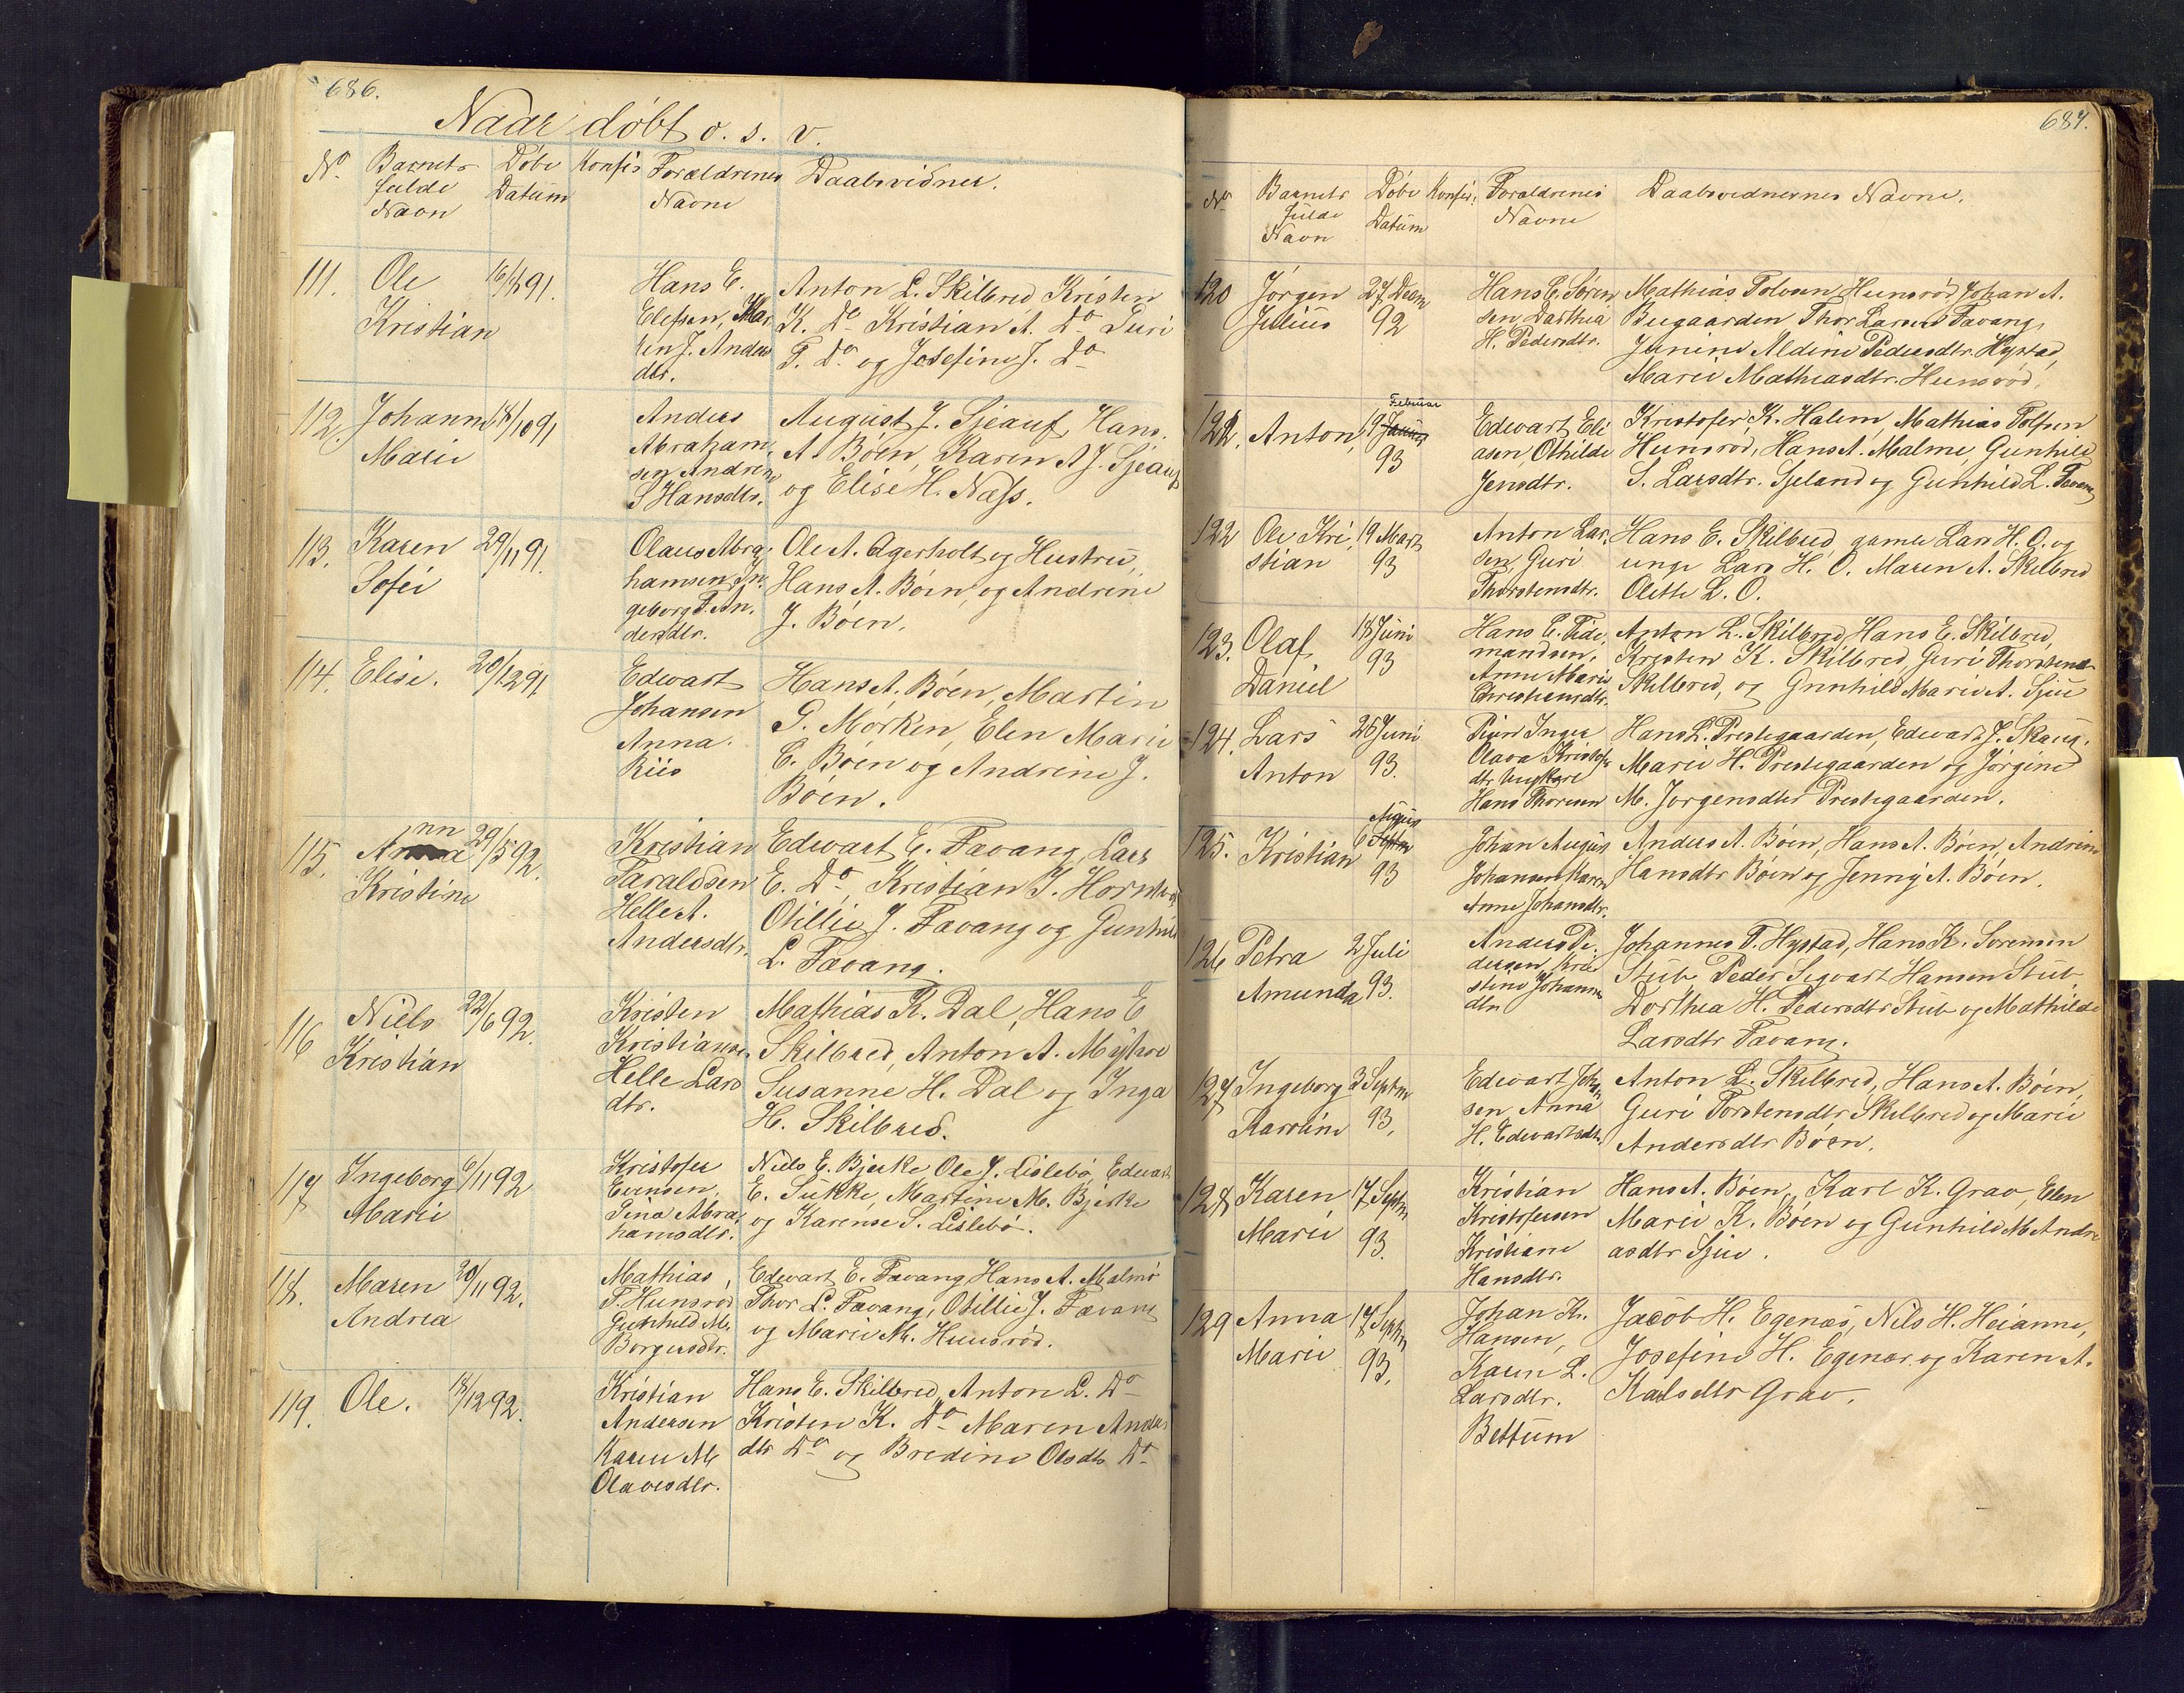 686.
Naar døbt o. s. v.
No Barnets fulde Navn Døbe Datum Konfir Forældrenes Navne Daabsvidner.
111. Ole Kristian 91. Hans E.
Anton L. Skilbred Kristen
K. Do Kristian A. Do Guri
T. Do og Josefine J. Do
112. Johanne Marie 18/10 91 Anders
Abraham
sen Andrine
S Hansdtr.
August J. Sjeauf, Hans
A. Bøen, Karen A J. Sjeauf
og Elise H. Næss.
113. Karen Sofie 29/11 91. Olaus Abra
hamsen In
geborg T. An
dersdtr.
Ole A. Agerholt og Hustru,
Hans A. Bøen, og Andrine
J. Bøen.
114. Elise. 20/12 91 Edvart
Johansen
Anna
Riis
Hans A. Bøen, Martin
G. Mørken, Elen Marie
C. Bøen og Andrine J.
Bøen.
115. Ann Kristine 29/5 92. Kristian
Taraldsen
Helle A.
Andersdtr.
Edvart E. Favang Lars
E. Do Kristian J.
Otillie J. Favang og Gunhild
L. Favang.
116 Niels Kristian 22/6 92. Kristen
Kristiansen
Helle Lars
dtr.
Mathias K. Dal, Hans E
Skilbred, Anton A. Myhre
Susanne H. Dal og Inga
H. Skilbred.
117 Ingeborg Marie 6/11 92 Kristofer
Evensen,
Lina Abra
hamsdtr.
Niels E. Bjerke Ole J. Lislebø, Edvart
E. Sukke, Martine M. Bjerke
og Karense S. Lislebø.
118. Maren Andrea 20/11 92. Mathias
T. Hunsrød
Gunhild M.
Borgersdtr.
Edvart E. Favang Hans A. Malmø
Thor L. Favang, Otillie J. Favang
og Marie M. Hunsrød.
119. Ole. 18/12 92. Kristian
Andersen
Karen M
Olavesdtr.
Hans E. Skilbred, Anton L. Do
Kristen K. Do Maren Anders
dtr Do og Bredine Olsdtr Do
687.
No Barnets fulde Navn Døbe Datum Konfir. Forældrenes Navne Daabsvidnernes Navne.
120 Jørgen Julius 27 Decm 92 Hans C. Søren
sen Darthea
H. Pedersdtr.
Mathias Tolvsen Hunsrød, Johan A.
Bugaarden Thor Larsen Favang,
Janine Aldine Pedersdtr. Hystad,
Marie Mathiasdtr. Hunsrød.
121. Anton 19 Februar 93 Edvart Eli
asen, Othilde
Jensdtr.
Kristofer K. Halem, Mathias Tolfsen
Hunsrød, Hans A. Malme, Gunhild
S. Larsdtr. Sjeland og Gunhild L. Favang
122 Ole Kri
stian 19 Marts 93 Anton Lar
sen, Guri
Thorstensdtr.
Hans E. Skilbred gamle Lars H. O. og
unge Lars H. O. Maren A. Skilbred
Olette L. O.
123. Olaf Daniel 18 Juni 93 Hans E. Tide
mandsen,
Anne Marie
Christiansdtr.
Anton L. Skilbred, Hans E. Skilbred,
Kristen K. Skilbred, Guri Thorstensdtr
Skilbred, og Gunhild Marie A. Sjue
124. Lars Anton 25 Juni 93. Pigen Inger
Olava Kristofer
dtr. Ungkarl
Hans Thoresen
Hans L. Prestegaarden, Edvart J. Skaug.
Marie H. Prestegaarden og Jørgine
M. Jørgensdtr Prestegaarden.
125. Kristian 6 August 93 Johan August
Johansen Karen
Anne Johansdtr.
Anders A. Bøen, Hans A. Bøen, Andrine
Hansdtr Bøen og Jenny A. Bøen.
126 Petra Amunda 2 Juli 93. Anders Pe
dersen, Kri
stine Johannes
dtr.
Johannes T. Hystad, Hans K. Sørensen
Stub, Peder Segvart Hansen Stub
Dorthea H. Pedersdtr Stub og Mathilde
Larsdtr Favang.
127 Ingeborg Karoline 3 Septm 93. Edvart Johan
sen, Anna
H. Edvartsdtr.
Anton L. Skilbred, Hans A. Bøen,
Guri Torstensdtr Skilbred og Marie
Andersdtr Bøen.
128 Karen Marie 17 Septm 93. Kristian
Kristofersen
Kristiane
Hansdtr.
Hans A. Bøen, Karl K. Grav, Elen
Marie K. Bøen og Gunhild M Andre
asdtr Sjue.
129 Anna Marie 17 Septm 93. Johan Kr.
Hansen,
Karen L.
Larsdtr.
Bettum
Jacob H. Egenæs, Nils H. Heianne,
Josefine H. Egenæs og Karen A.
Karlsdtr Grav.